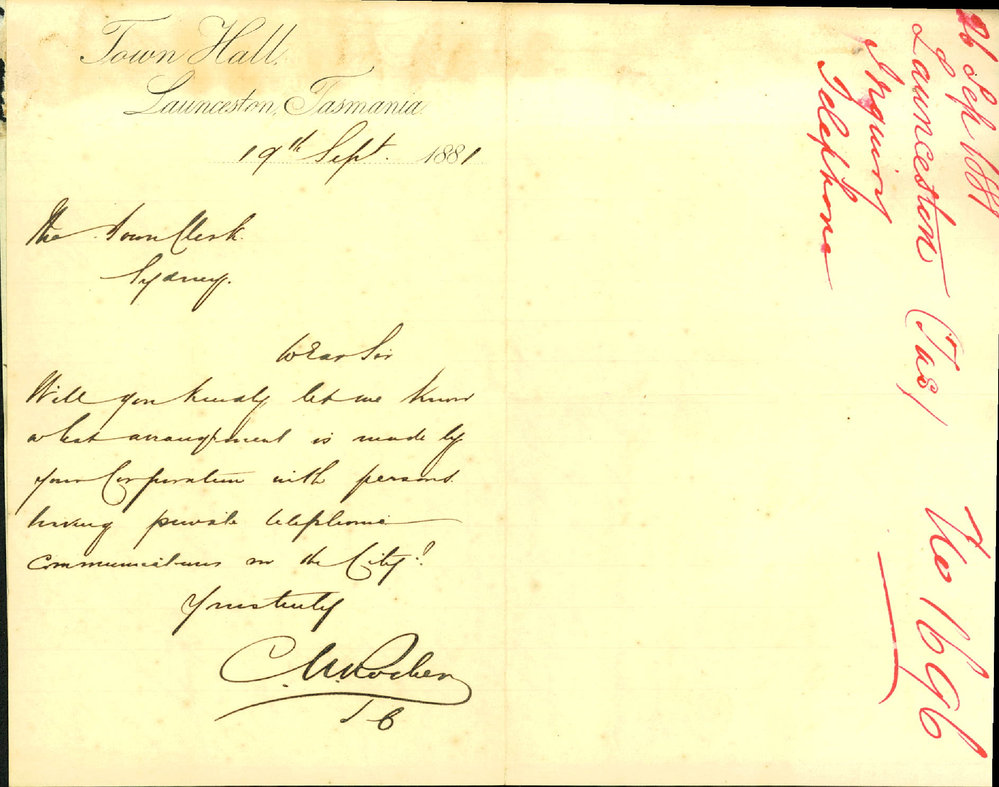 Town Hall.
Launceston, Tasmania.
19th Sept. 1881
The Town Clerk
Sydney.
Dear Sir
Will you kindly let me know
what arrangement is made by
your Corporation with persons
having private telephonic
communications in the City?
Yours truly
C. W. Rocher
T C
26 Sep 1881
Launceston (Tas)
Inquiry
Telephone
No 1696